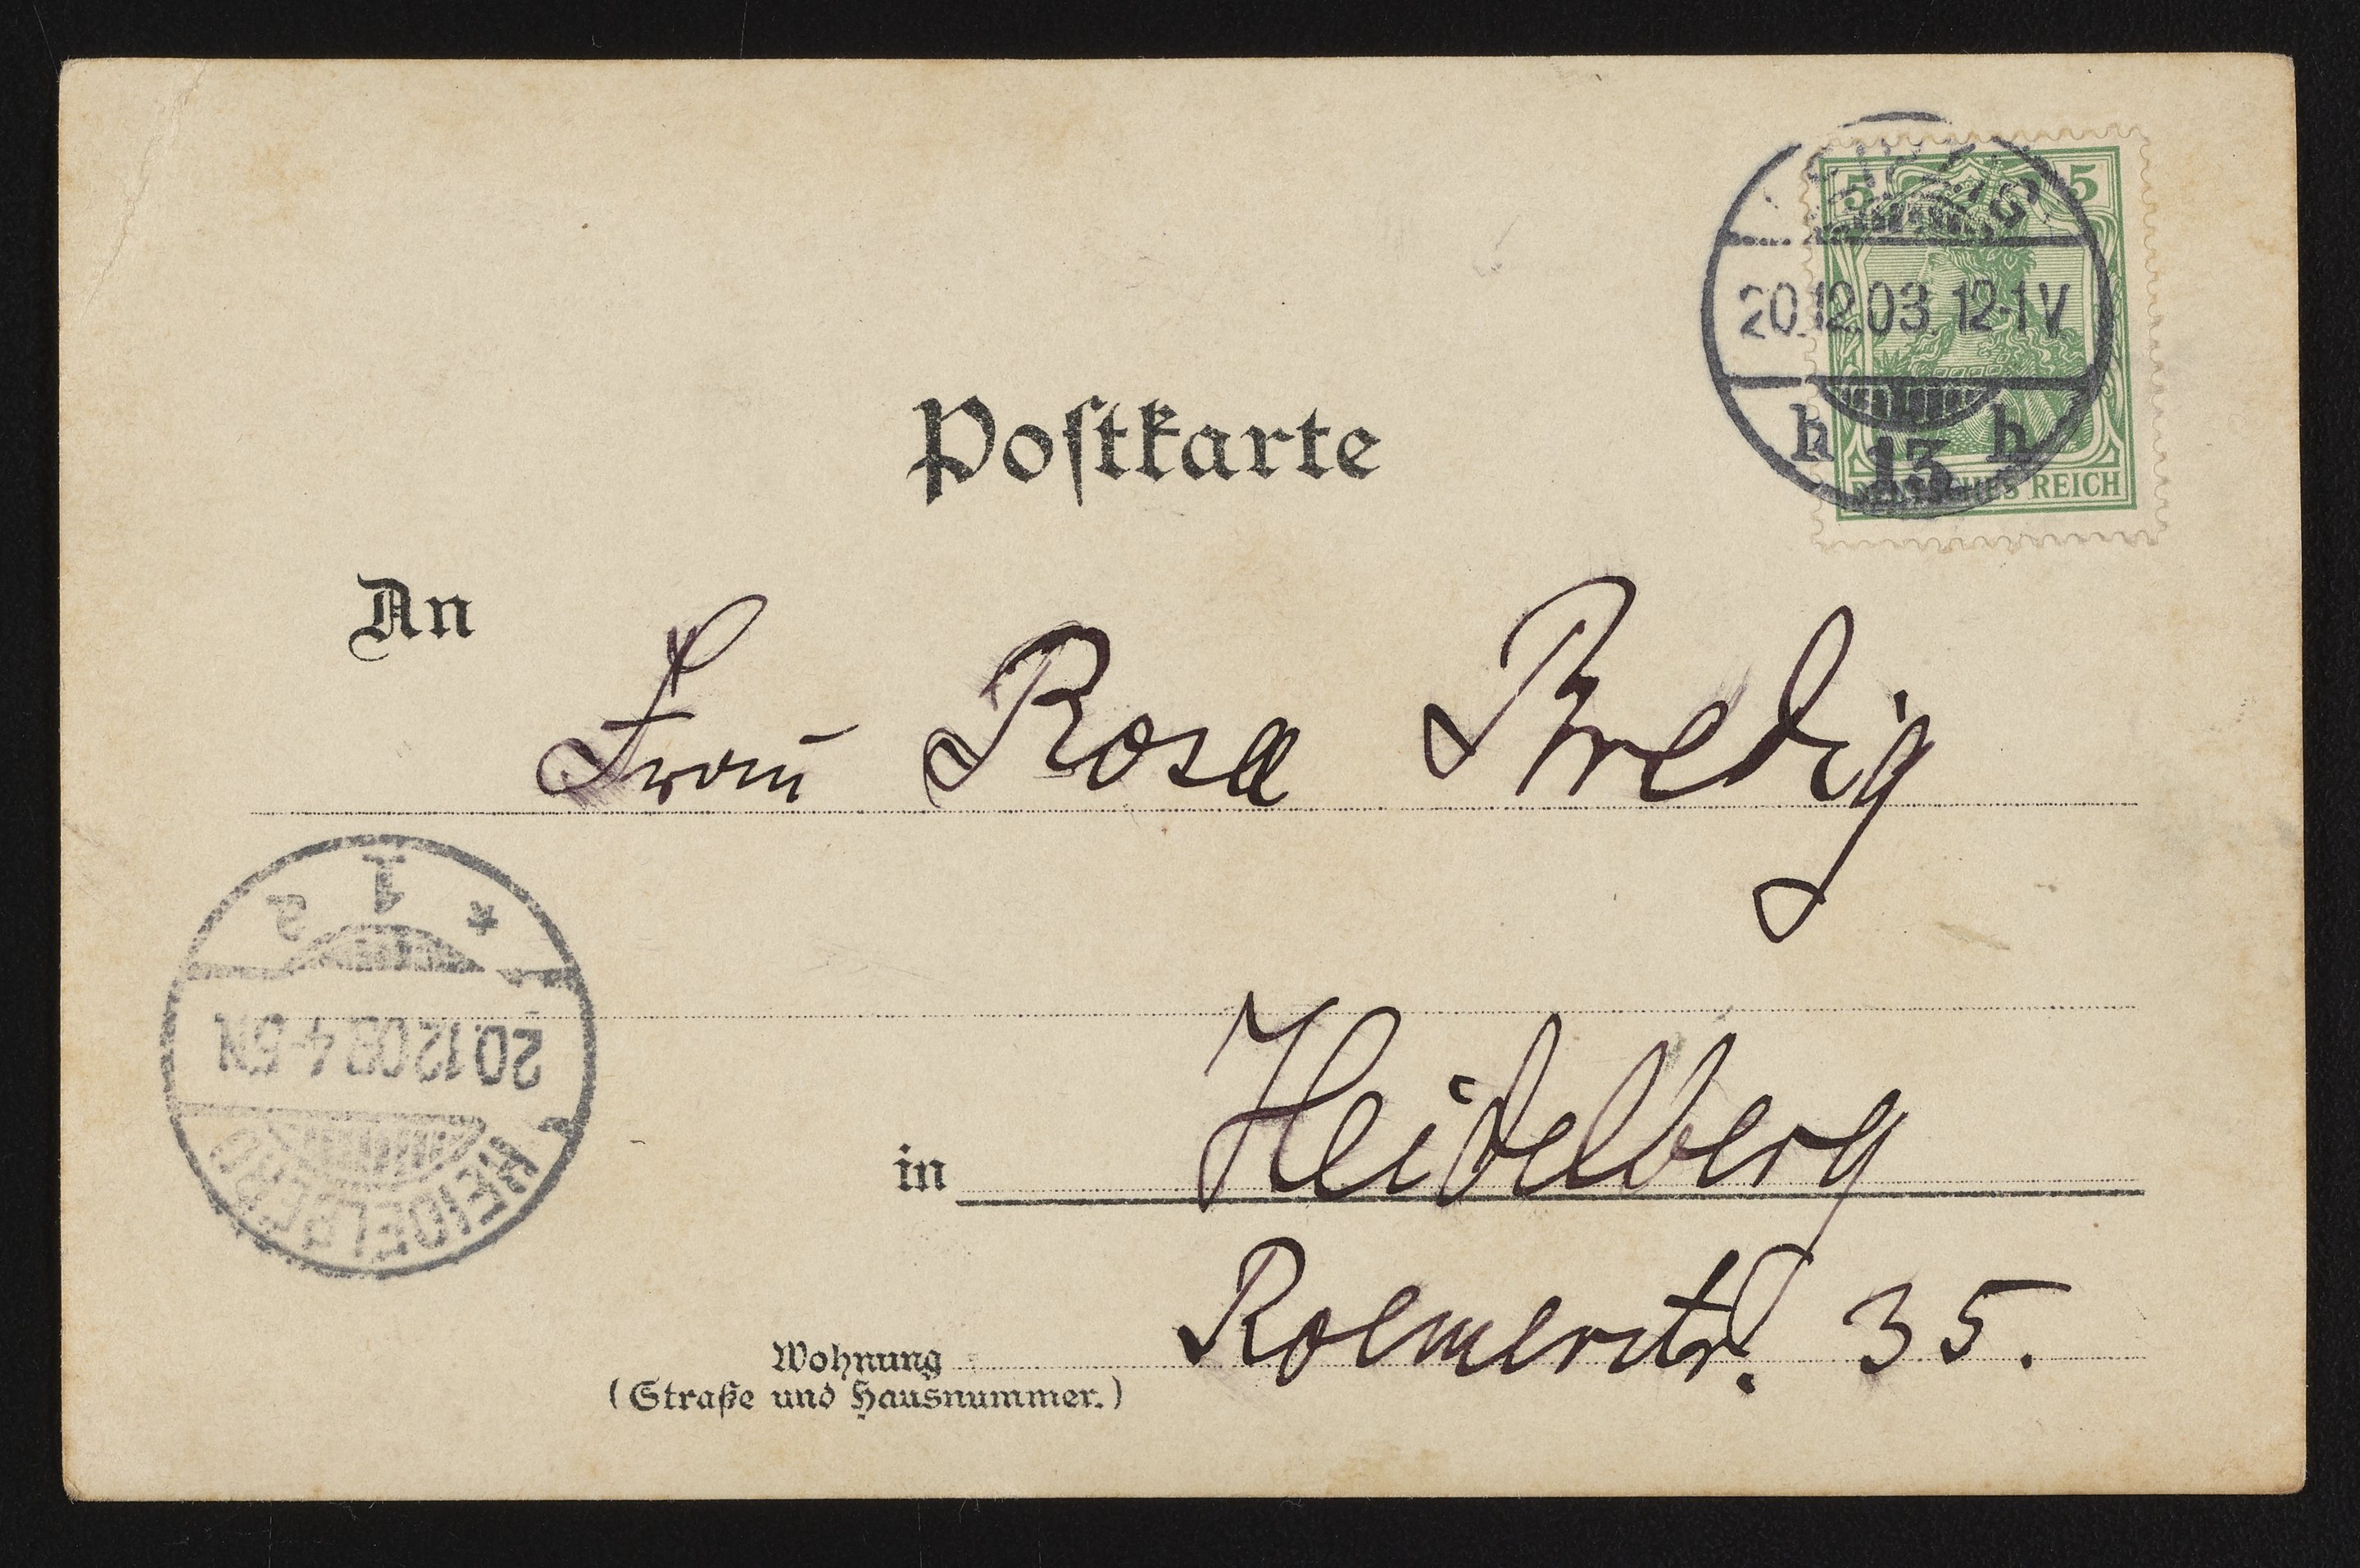 LEIPZIG
5 5
20.12.03.12-1V
h 13 h
DEUTSCHES REICH
Postkarte
An
Frau Rosa Bredig
1
* a
20.12.03.4-5N
HEIDELBERG
in Heidelberg
Roemerstr. 35.
Wohnung
(Straße und Hausnummer.)